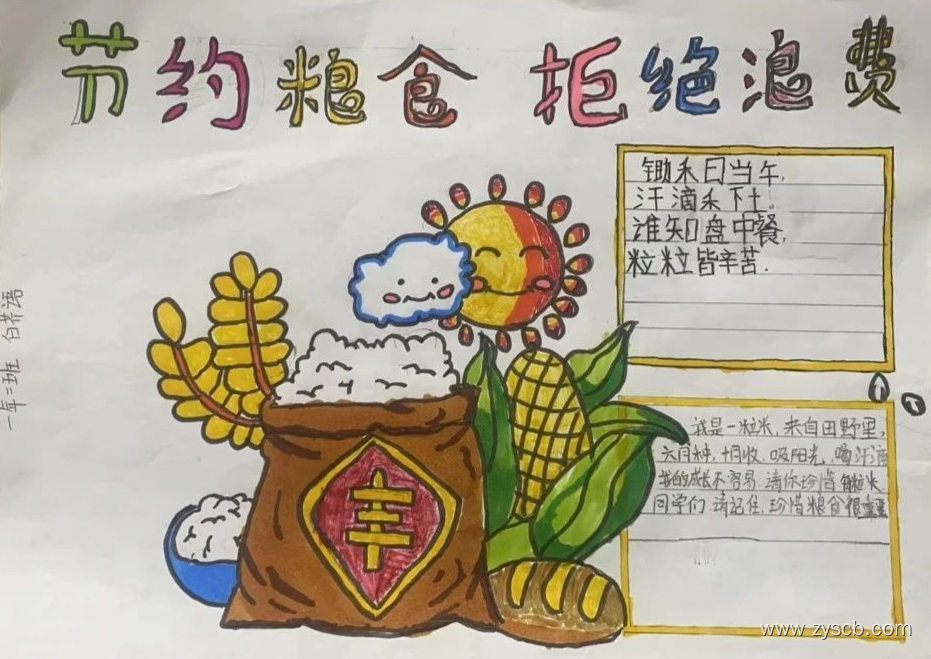 节约粮食 拒绝浪费
锄禾日当午,
汗滴禾下土。
谁知盘中餐,
粒粒皆辛苦.
我是一粒米,来自田野里,
六月种,十月收,吸阳光,喝汗滴
我的成长不容易,请你珍惜每粒米,
同学们,请记住,珍惜粮食很重要
丰
一年二班
www.zyscb.com